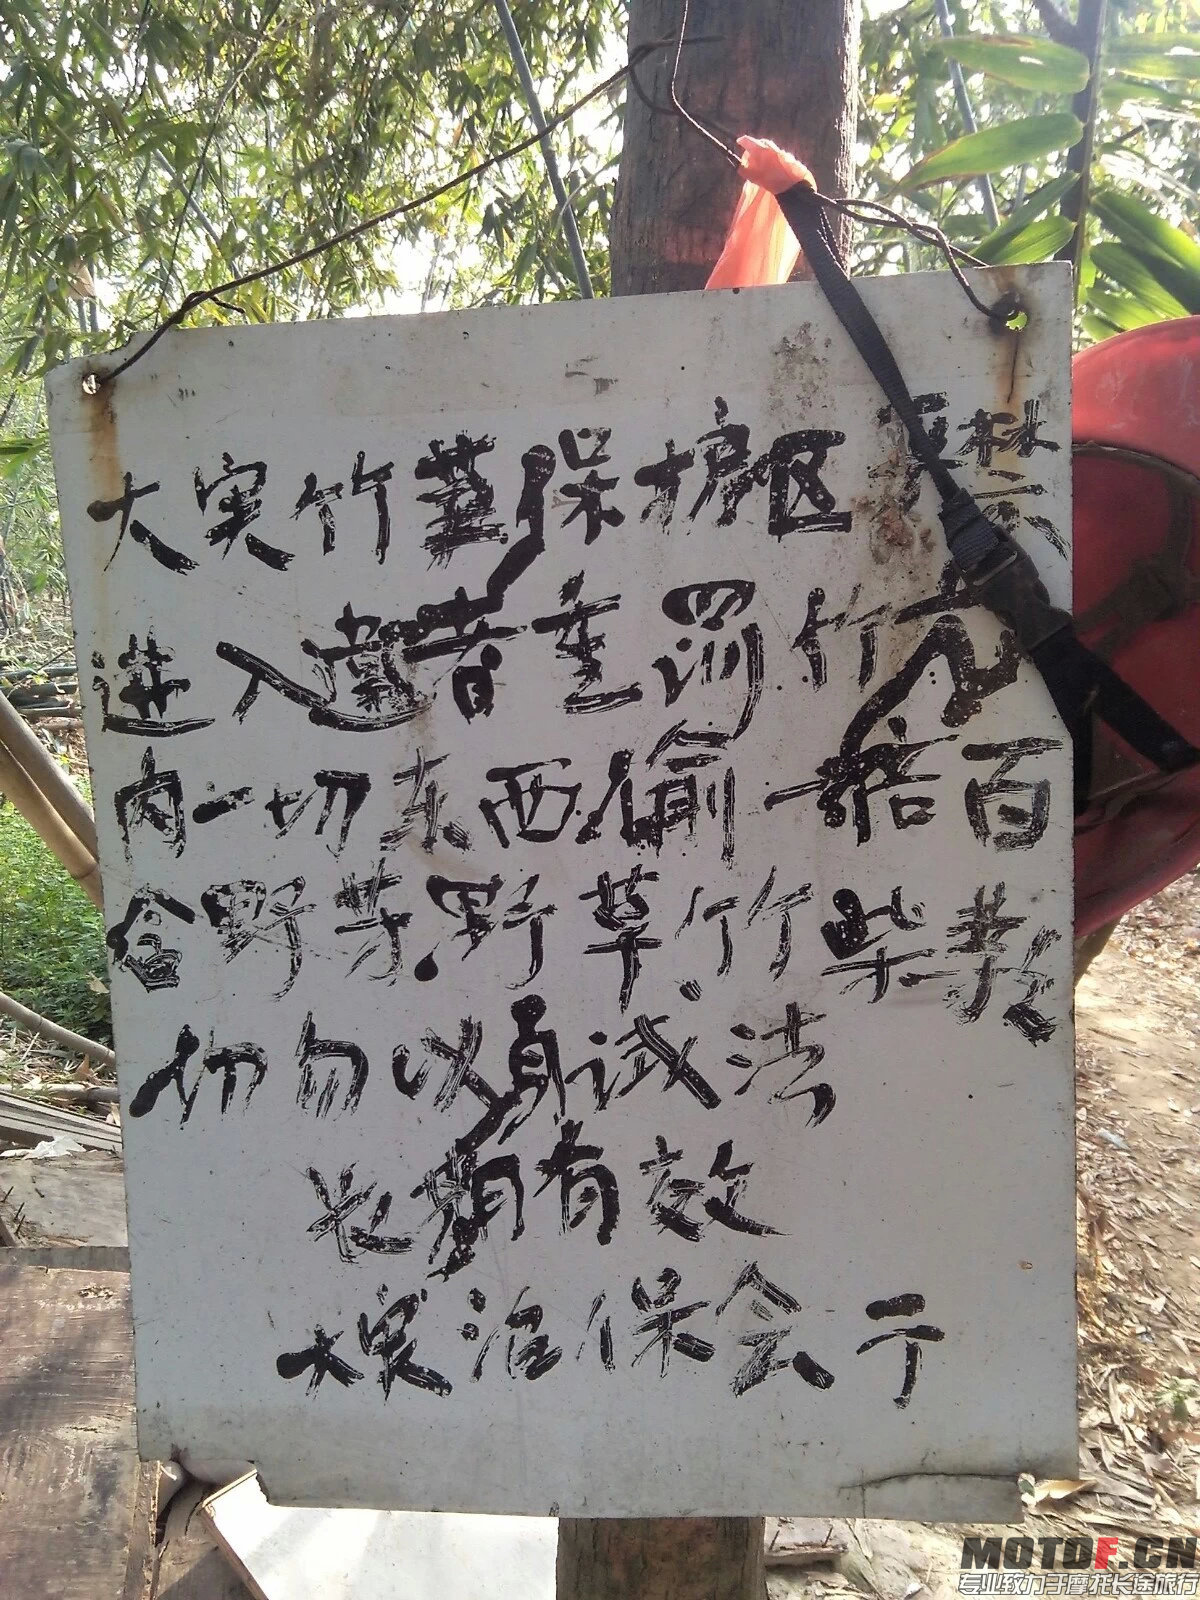 大实竹董保护区严禁
进入违者重罚竹
内一切东西偷一赔百
含野芽野草竹柴敬
切勿以身试法
长期有效
根治保会于
MOTOF.CN
专业致力于摩托长途旅行